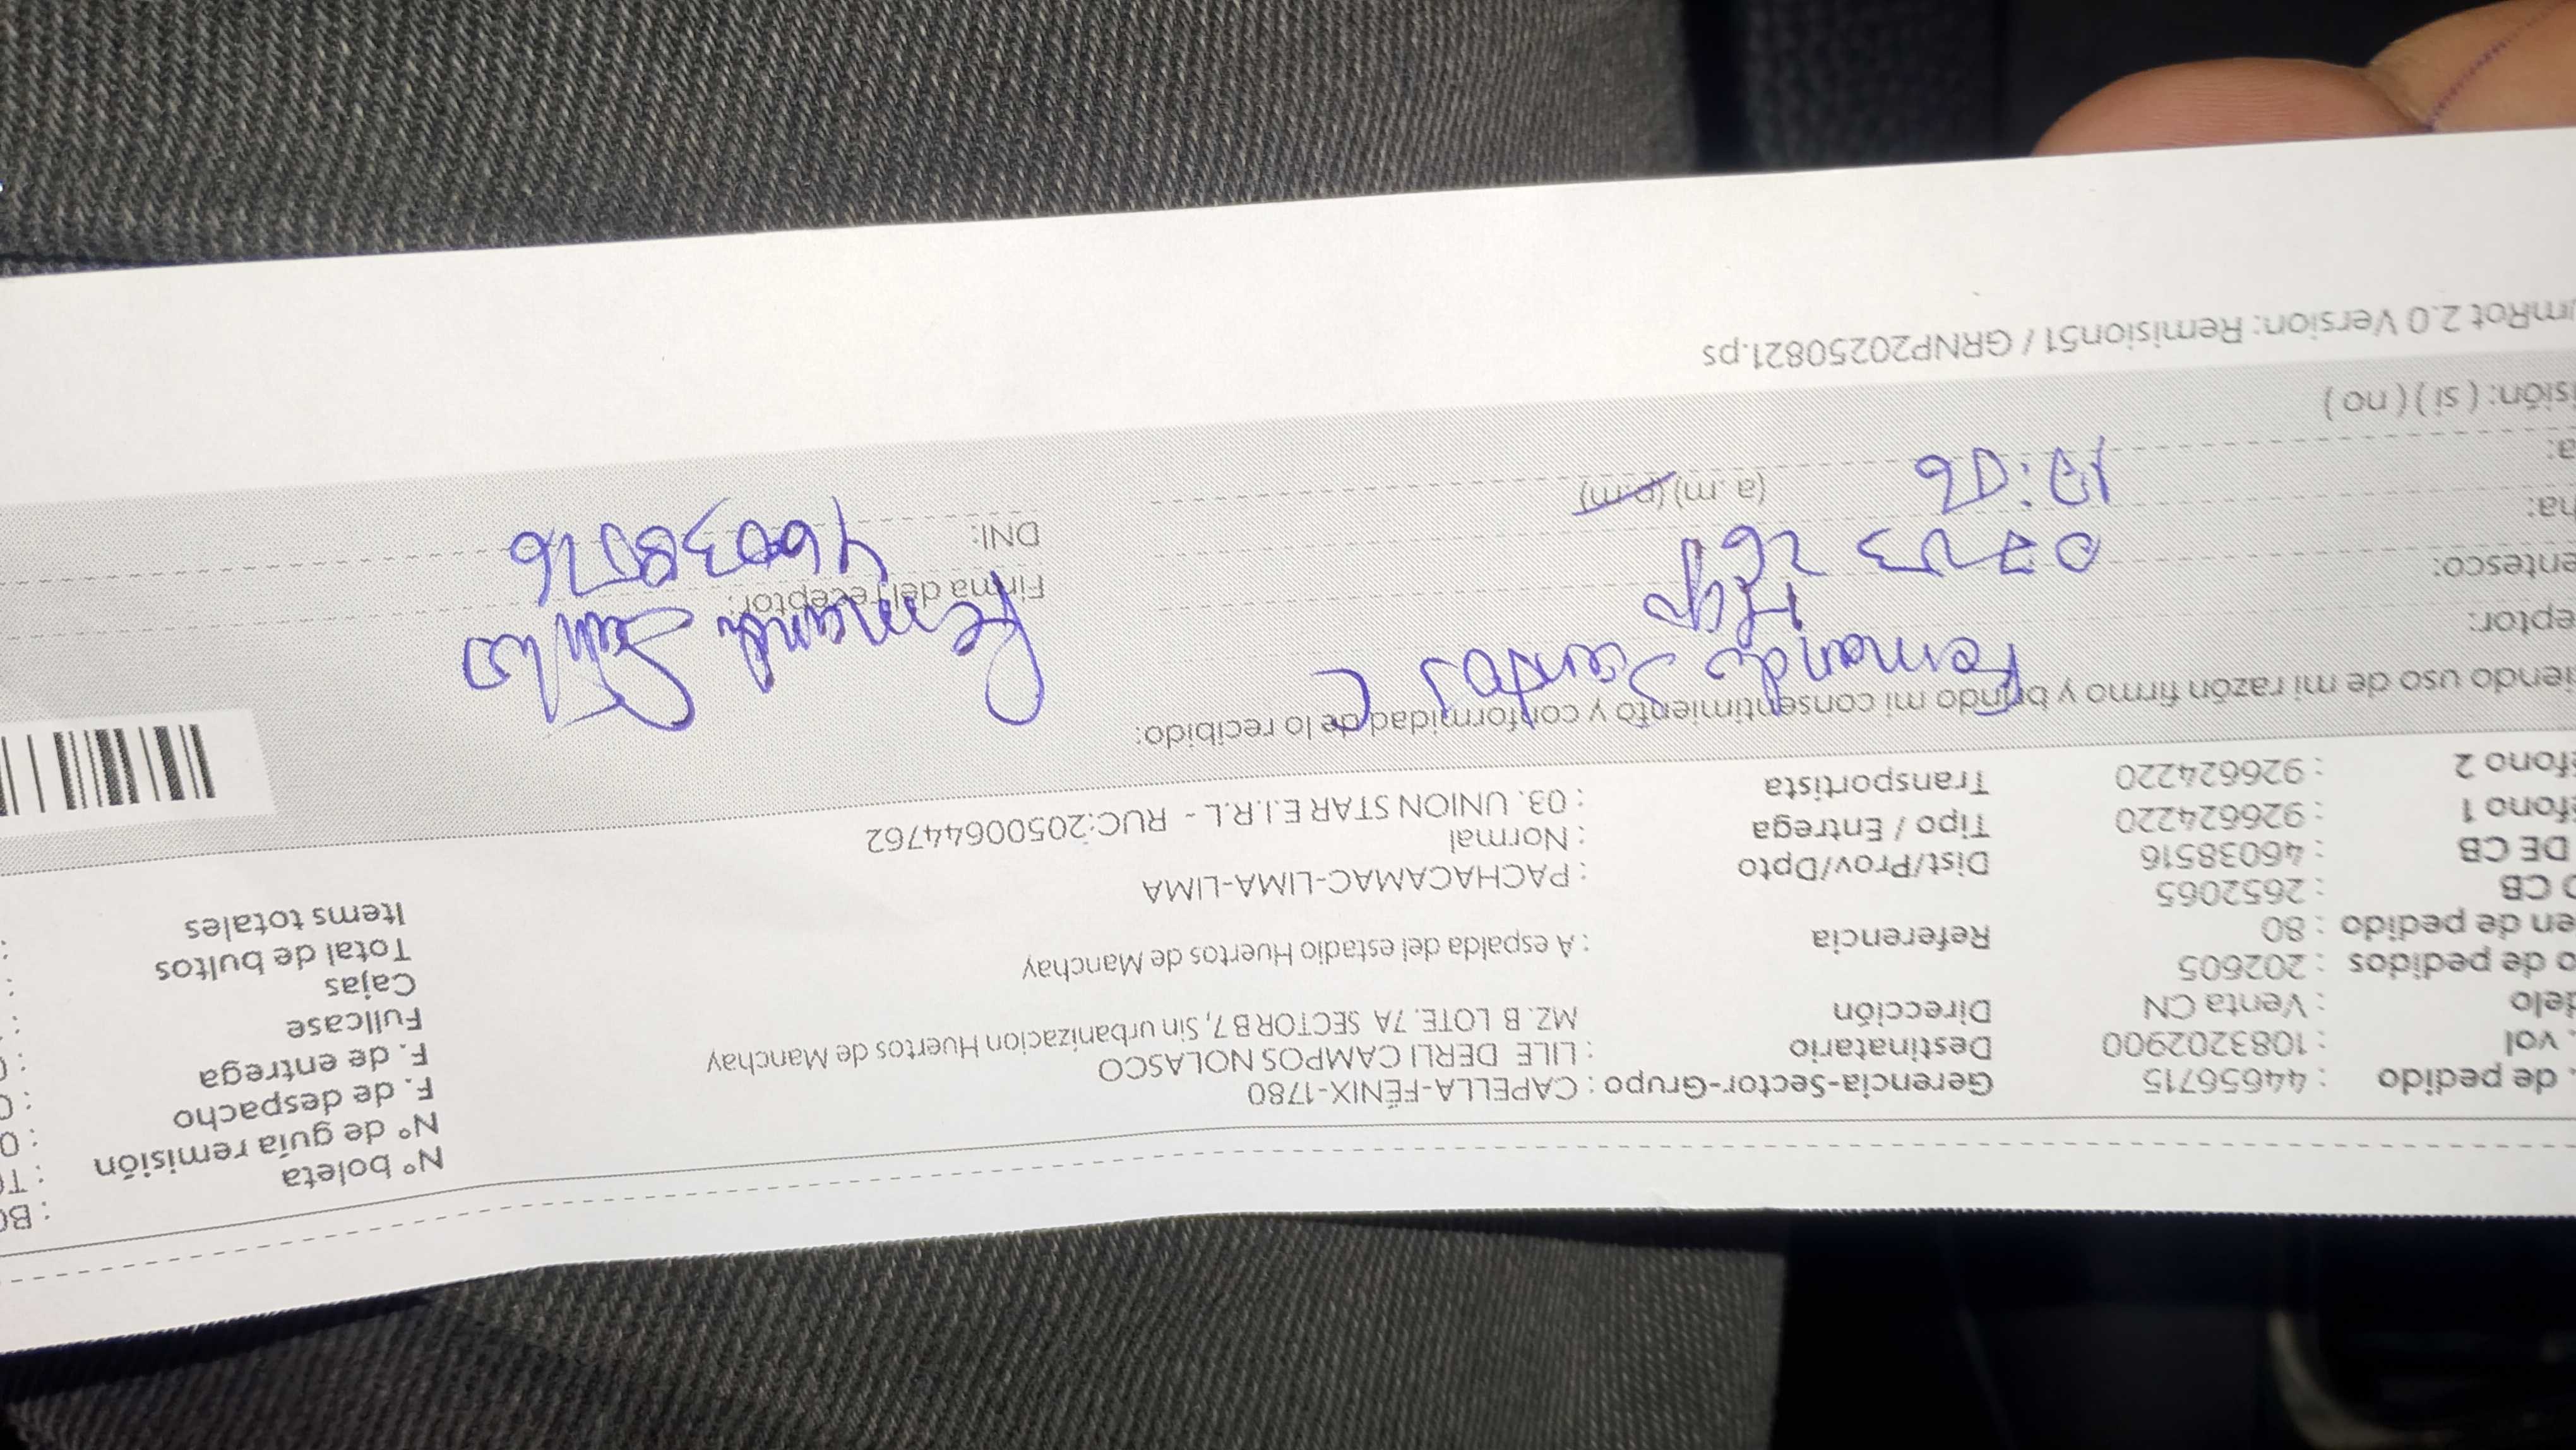 Nº boleta : B
Nº de guía remisión : T
F. de despacho : 0
F. de entrega : 0
Fullcase :
Cajas :
Total de bultos :
Items totales :
. de pedido : 44656715
. vol : 1083202900
delo : Venta CN
o de pedidos : 202605
en de pedido : 80
O CB : 2652065
DE CB : 46038516
éfono 1 : 926624220
éfono 2 : 926624220
Gerencia-Sector-Grupo : CAPELLA-FÉNIX-1780
Destinatario : LILE DERLI CAMPOS NOLASCO
Dirección MZ. B LOTE. 7A SECTOR B 7, Sin urbanizacion Huertos de Manchay
Referencia : A espalda del estadio Huertos de Manchay
Dist/Prov/Dpto : PACHACAMAC-LIMA-LIMA
Tipo / Entrega : Normal
Transportista : 03. UNION STAR E.I.R.L - RUC:20500644762
iendo uso de mi razón firmo y brindo mi consentimiento y conformidad de lo recibido:
eptor: Fernanda Santos C
entesco: Hija
ha: 07 03 26
a: (a. m) (p.m)
isión: ( si ) ( no )
Firma del receptor: Fernanda Santos
DNI:
mRot 2.0 Version: Remision51 / GRNP20250821.ps